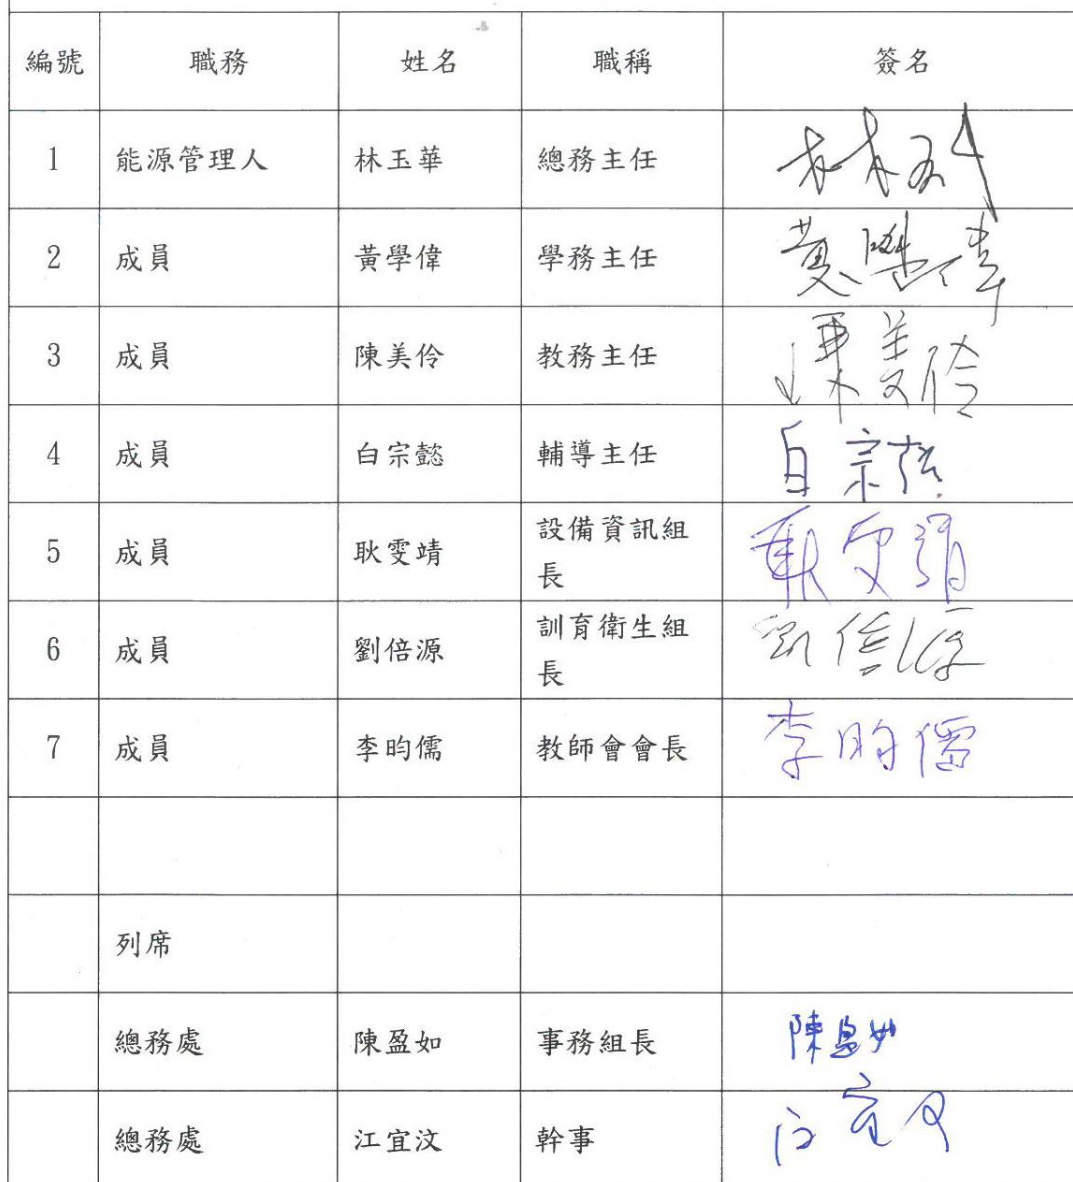 編號 職務 姓名 職稱 簽名
1 能源管理人 林玉華 總務主任 林玉華
2 成員 黃學偉 學務主任 黃學偉
3 成員 陳美伶 教務主任 陳美伶
4 成員 白宗懿 輔導主任 白宗懿
5 成員 耿雯靖 設備資訊組
長 耿雯靖
6 成員 劉倍源 訓育衛生組
長 劉倍源
7 成員 李昀儒 教師會會長 李昀儒
列席
總務處 陳盈如 事務組長 陳盈如
總務處 江宜汶 幹事 江宜汶